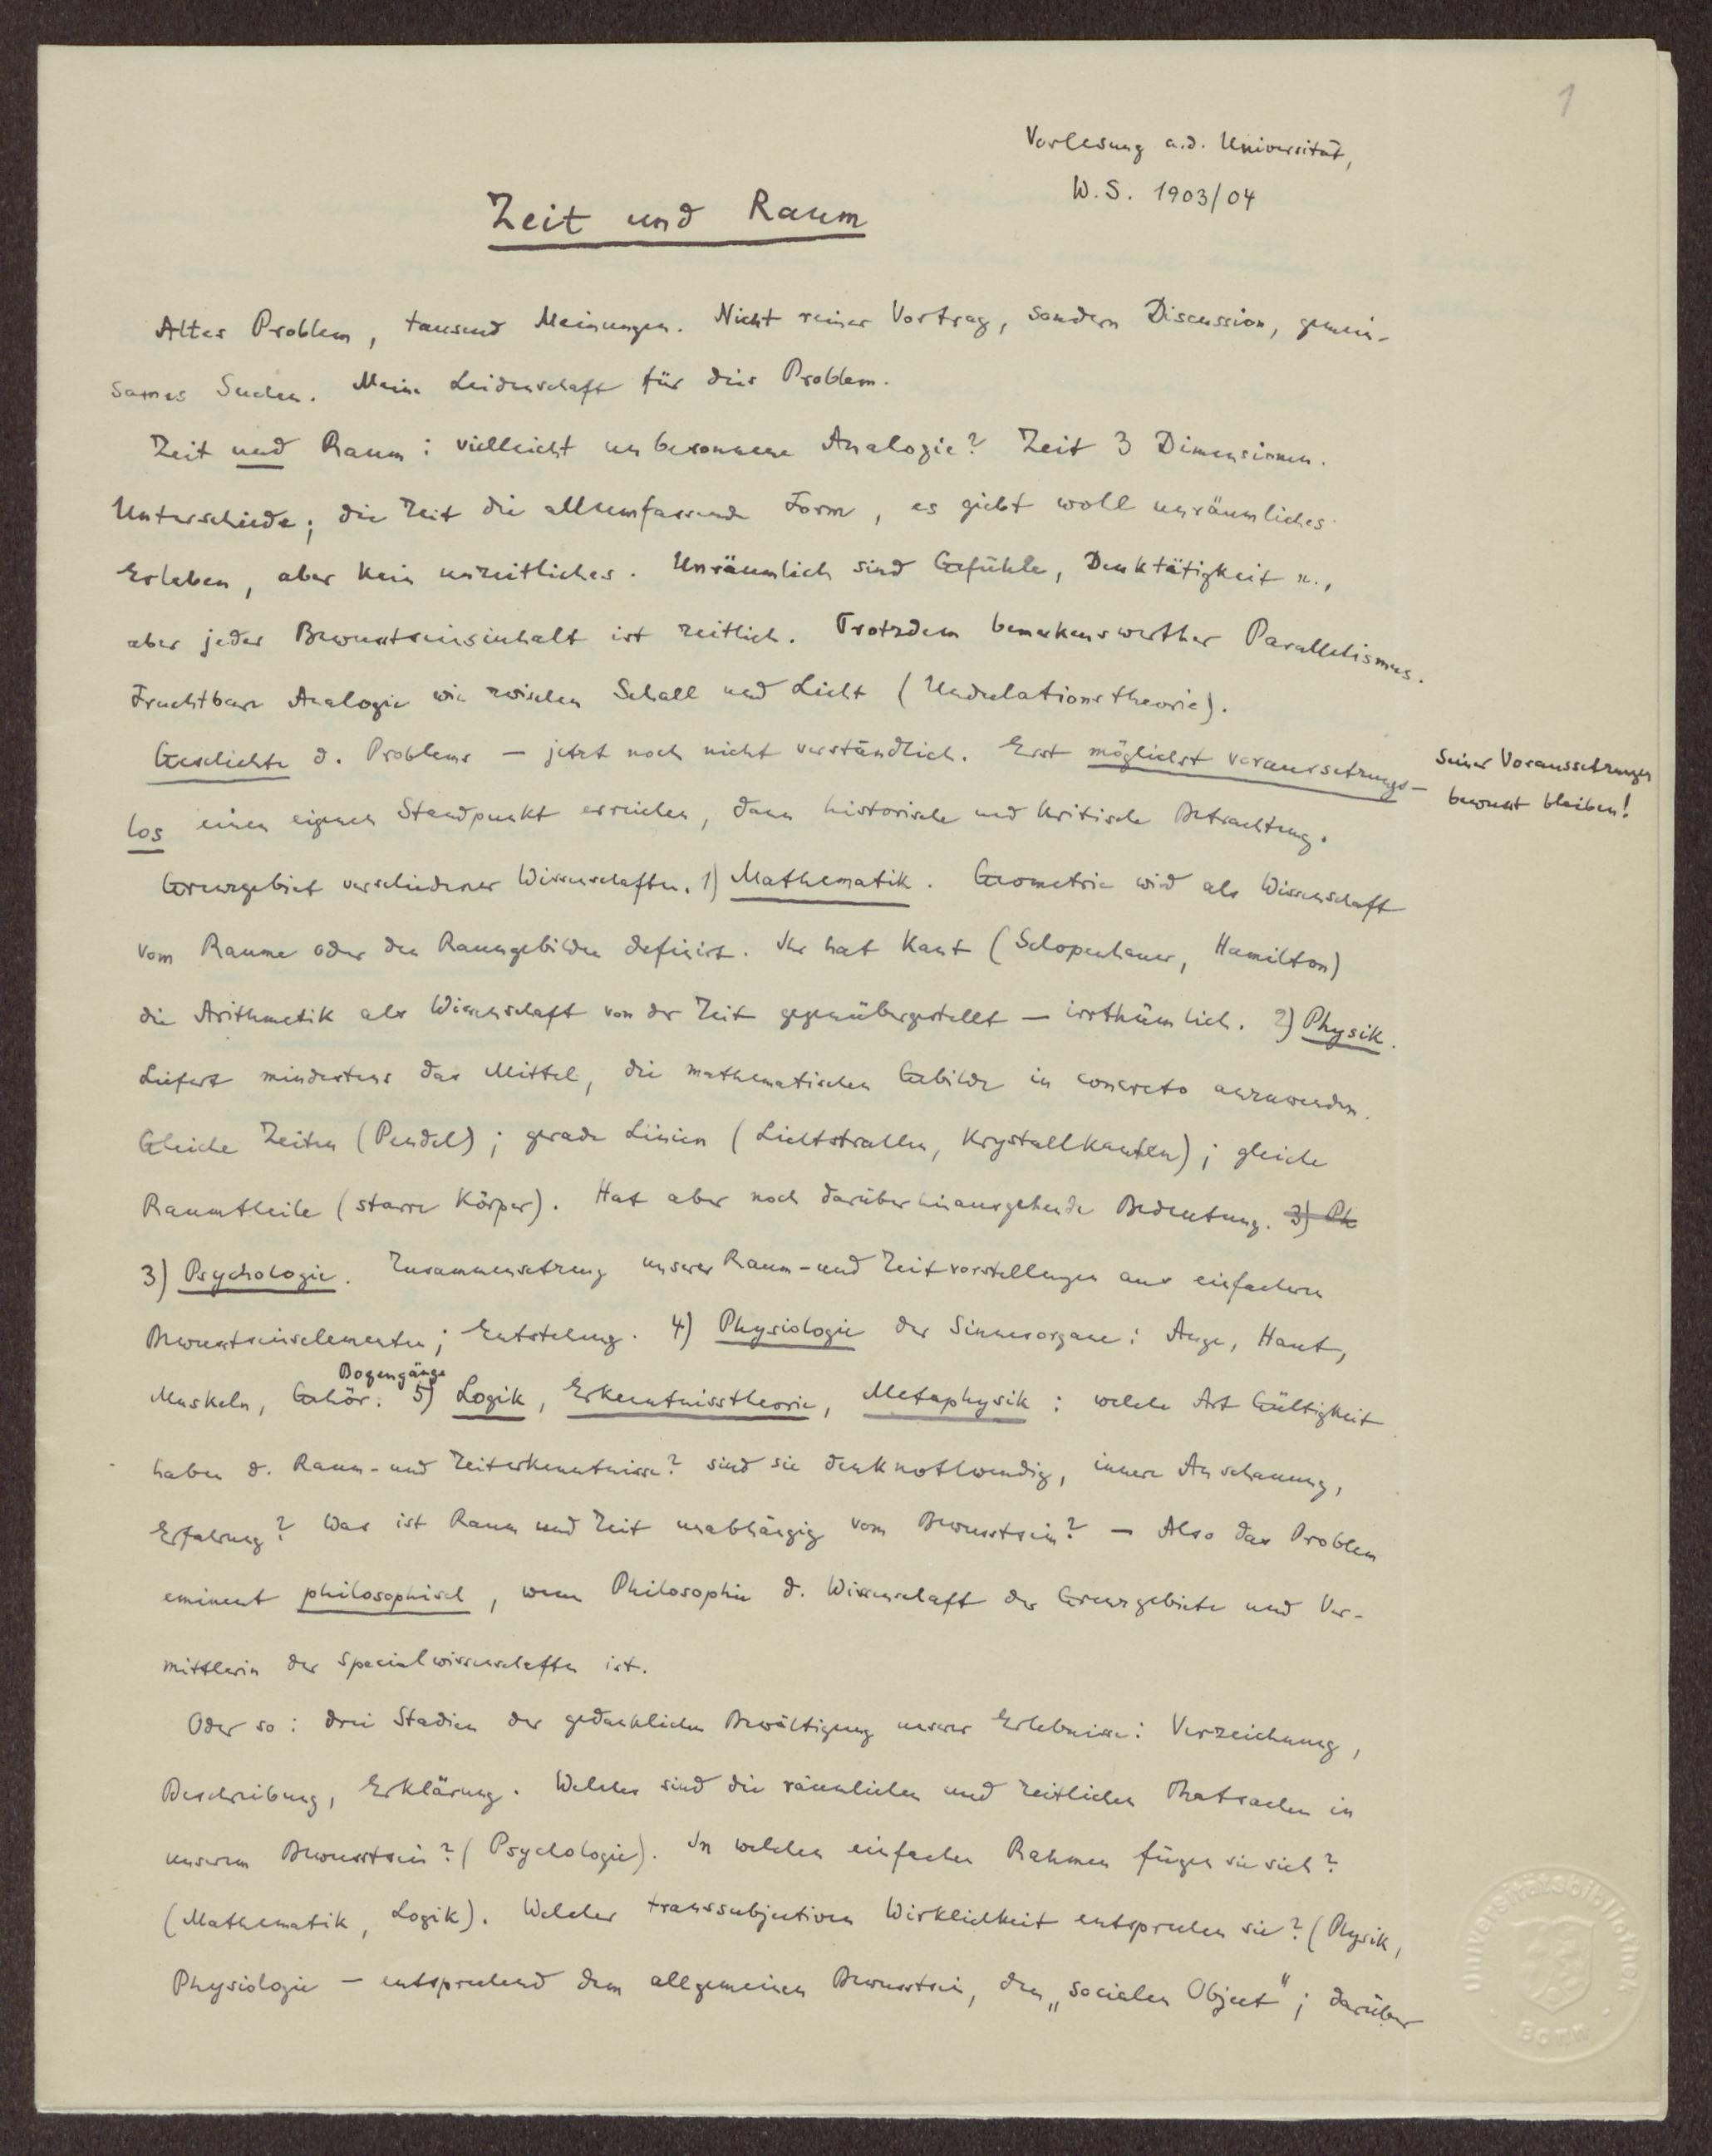 1
Vorlesung a.d. Universität,
W.S. 1903/04
Zeit und Raum
Altes Problem, tausend Meinungen. Nicht reiner Vortrag, sondern Discussion, gemein-
sames Suchen. Meine Leidenschaft für dies Problem.
Zeit und Raum: vielleicht unbesonnene Analogie? Zeit 3 Dimensionen.
Unterschiede; die Zeit die allumfassende Form, es giebt wohl unräumliches
Erleben, aber kein unzeitliches. Unräumlich sind Gefühle, Denktätigkeit u.,
aber jeder Bewusstseinsinhalt ist zeitlich. Trotzdem bemerkenswerther Parallelismus.
Fruchtbare Analogie wie zwischen Schall und Licht (Undulationstheorie).
Geschichte d. Problems – jetzt noch nicht verständlich. Erst möglichst voraussetzungs-
seiner Voraussetzungen
bewusst bleiben!
los einen eigenen Standpunkt erreichen, dann historische und kritische Betrachtung.
Grenzgebiet verschiedener Wissenschaften. 1) Mathematik. Geometrie wird als Wissenschaft
vom Raume oder den Raumgebilden definirt. Ihr hat Kant (Schopenhauer, Hamilton)
die Arithmetik als Wissenschaft von der Zeit gegenübergestellt – irrthümlich. 2) Physik.
Liefert mindestens das Mittel, die mathematischen Gebilde in concreto anzuwenden.
Gleiche Zeiten (Pendel); gerade Linien (Lichtstrahlen, Krystallkanten); gleiche
Raumtheile (starre Körper). Hat aber noch darüberhinausgehende Bedeutung. 3) Ph
3) Psychologie. Zusammensetzung unserer Raum- und Zeitvorstellungen aus einfachern
Bewusstseinselementen; Entstehung. 4) Physiologie der Sinnesorgane: Auge, Haut,
Bogengänge
Muskeln, Gehör. 5) Logik, Erkenntnisstheorie, Metaphysik: welche Art Gültigkeit
haben d. Raum- und Zeiterkenntnisse? sind sie denknothwendig, innere Anschauung,
Erfahrung? Was ist Raum und Zeit unabhängig vom Bewusstsein? – Also das Problem
eminent philosophisch, wenn Philosophie d. Wissenschaft der Grenzgebiete und Ver-
mittlerin der Specialwissenschaften ist.
Oder so: drei Stadien der gedanklichen Bewältigung unserer Erlebnisse: Verzeichnung,
Beschreibung, Erklärung. Welches sind die räumlichen und zeitlichen Thatsachen in
unserem Bewusstsein? (Psychologie). In welchen einfachen Rahmen fügen sie sich?
(Mathematik, Logik). Welcher transsubjectiven Wirklichkeit entsprechen sie? (Physik,
Physiologie – entsprechend dem allgemeinen Bewusstsein, dem „socialen Object"; darüber
Universitätsbibliothek
Bonn